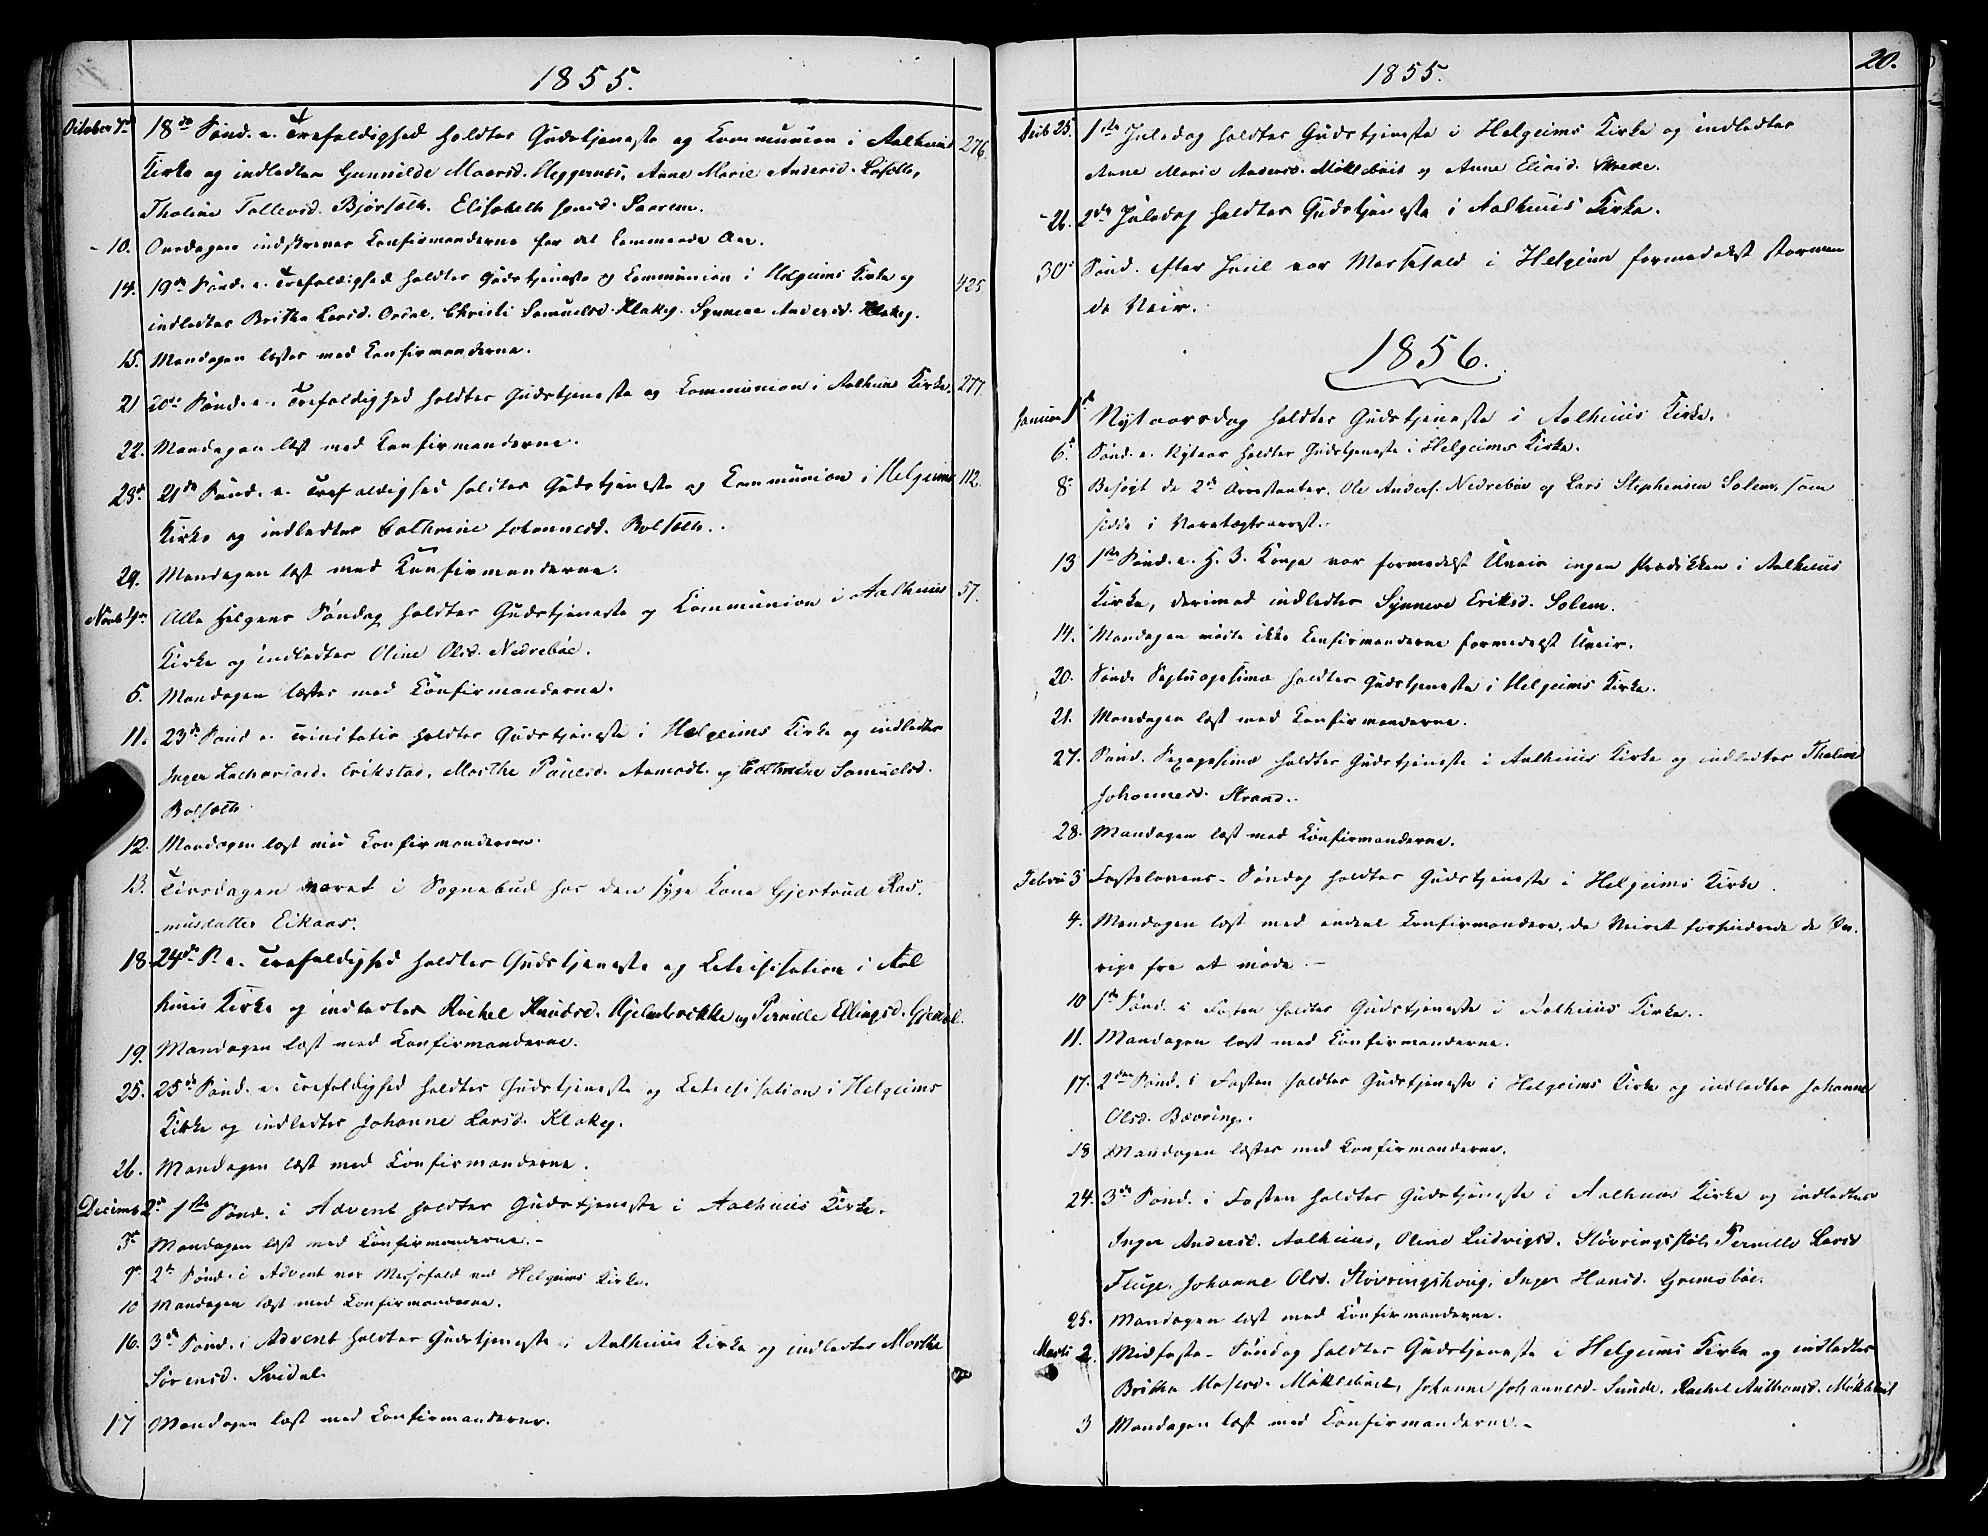 1855.
October 7de 18de Sönd. e. Trefoldighed holdtes Gudstjeneste og Kommunion i Aalhuus 276.
Kirke og indledtes Gunnilde Moersd. Heggernes, Anne Marie Andersd.
Tholine Tollevsd. Bjørsæth. Elisabeth Jensd. Paarem.
- 10. Onsdagen indskreves Konfirmanderne for det kommende Aar.
14. 19de Sönd. e. Trefoldighed holdtes Gudstjeneste og Communion i Helgeims Kirke og 425.
indledtes Britha Larsd. Ordal, Christi Samuelsd. Klakeg. Synneve Andersd. Klakeg.
15. Mandagen læstes med Konfirmanderne.
21 20de Sönd. e. Trefoldighed holdtes Gudstjeneste og Kommunion i Aalhuus Kirke. 277.
22. Mandagen læst med Konfirmanderne.
28de 21de Sönd. e. Trefoldighed holdtes Gudstjeneste og Kommunion i Helgeims 112.
Kirke og indledtes Cathrine Johannesd. Bolsæth.
29. Mandagen læst med Konfirmanderne.
Novb 4de Alle Helgens Söndag holdtes Gudstjeneste og Kommunion i Aalhuus 57.
Kirke og indledtes Oline Olsd. Nedreböe.
5. Mandagen læstes med Konfirmanderne.
11. 23de Sönd e. Trinitatis holdtes Gudstjeneste i Helgeims Kirke og indledtes
Inger Zachariasd. Erikstad, Marthe Poulsd. Aamodt og Cathrine Samuelsd.
Bolsæth
12. Mandagen læst med Konfirmanderne.
13. Tirsdagen været i Sognebud hos den syge Kone Gjertrud Ras-
musdatter Eikaas.
18 24de S. e. Trefoldighed holdtes Gudstjeneste og Catechisation i Aal
huus Kirke og indledtes Rachel Knudsd. Hjelmbrekke og Pernille Ellingsd.
19. Mandagen læst med Konfirmanderne.
25. 25de Sönd. e. Trefoldighed holdtes Gudstjeneste og Catechisation i Helgeims
Kirke og indledtes Johanne Larsd. Klakeg.
26. Mandagen læst med Konfirmanderne.
Decimb 2de 1ste Sönd. i Advent holdtes Gudstjeneste i Aalhuus Kirke.
3de Mandagen læst med Konfirmanderne. -
9de 2de Sönd. i Advent var Messefald ved Helgeims Kirke.
10 Mandagen læst med Konfirmanderne.
16. 3de Sönd. i Advent holdtes Gudstjeneste i Aalhuus Kirke og indledtes Marthe
Sörensd. Svidal.
17 Mandagen læst med Konfirmanderne.
1855. 20.
Decb 25. 1ste Juledag holdtes Gudstjeneste i Helgeims Kirke og indledtes
Anne Marie Andersd. Möklebust og Anne Eliasd. Skrede.
- 26. 2den Juledag holdtes Gudstjeneste i Aalhuus Kirke.
30te Sönd. efter Juul var Messefald i Helgeim formedelst stormen
de Veir.
1856.
Januar 1te Nytaarsdag holdtes Gudstjeneste i Aalhuus Kirke.
6te Sönd. e. Nytaar holdtes Gudstjeneste i Helgeims Kirke.
8de Besögt de 2de Arrestanter, Ole Anders. Nedrebøe og Lars Stephensen Solem, som
sidde i Varetægtsarrest.
13 1ste Sönd. e. H. 3. Konge var formedelst Uveir ingen Prædikken i Aalhuus
Kirke, derimod indledtes Synneve Eriksd. Solem.
14. Mandagen mödte ikke Konfirmanderne formedelst Uveir.
20. Sönd. Septuagesima holdtes Gudstjeneste i Helgeims Kirke.
21. Mandagen læst med Konfirmanderne.
27. Sönd. Sexagesima holdtes Gudstjeneste i Aalhuus Kirke og indledtes Tholine
Johannesd. Strand.
28. Mandagen læst med Konfirmanderne.
Febru 3 Fastelavens-Söndag holdtes Gudstjeneste i Helgeims Kirke.
4. Mandagen læst med endeel Konfirmandere, da Veiret forhindrede de Öv-
rige fra at möde. -
10 1ste Sönd. i Fasten holdtes Gudstjeneste i Aalhuus Kirke.
11. Mandagen læst med Konfirmanderne.
17. 2den Sönd. i Fasten holdtes Gudstjeneste i Helgeims Kirke og indledtes Johanne
Olsd. Bævring.
18 Mandagen læstes med Konfirmanderne.
24. 3de Sönd. i Fasten holdtes Gudstjeneste i Aalhuus Kirke og indledtes
Inger Andersd. Aalhuus, Oline Ludvigsd. Pernille Larsd
Fluge, Johanne Olsd. Støvringshoug, Inger Hansd. Grimsböe.
25. Mandagen læst med Konfirmanderne.
Marts 2. Midfaste-Söndag holdtes Gudstjeneste i Helgeims Kirke og indledtes
Britha Mosesd. Möklebust, Johanne Johannesd. Sunde, Rachel Anthonsd. Möklebust
3 Mandagen læst med Konfirmanderne. -